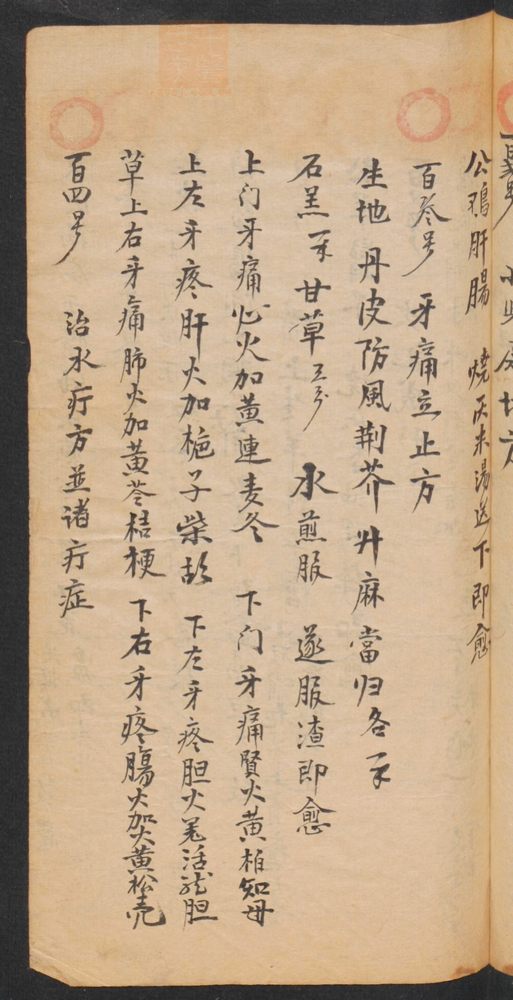 公鸡肝腸 燒灰米湯送下即愈
百叁号 牙痛立止方
生地 丹皮防風荆芥升麻當归各一不
石羔一不 甘草五分 水煎服 遂服渣即愈
上门牙痛心火加黄連麦冬 下门牙痛腎火黄柏知母
上左牙疼肝火加栀子柴胡 下左牙疼胆火羌活龙胆
草上右牙痛肺火加黄芩桔梗 下右牙疼腸火加大黄松壳
百四号 治水疔方並诸疔症